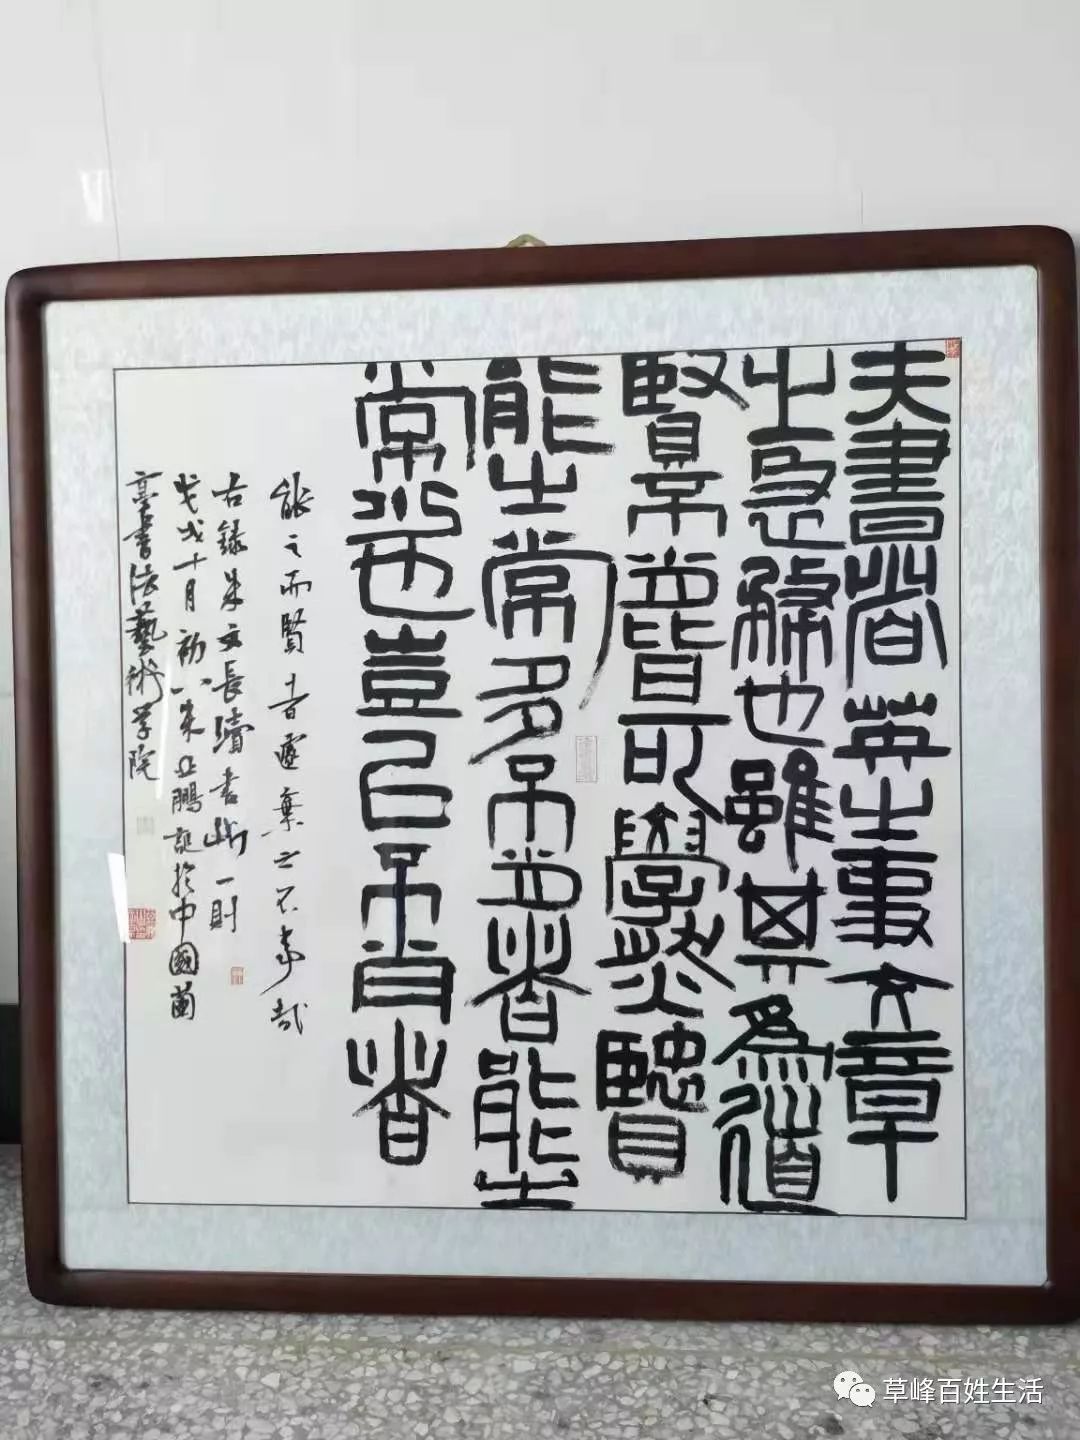 夫書者英之事文章
之急務也雖其為道
賢不肖皆可學然賢
能之常多不肖者能之
常少也豈以不肖者
能之而賢者遽棄之不事哉
右錄朱文長續書斷一則
戊戌十月初八朱亞鵬記於中國蘭
亭書法藝術學院
草峰百姓生活